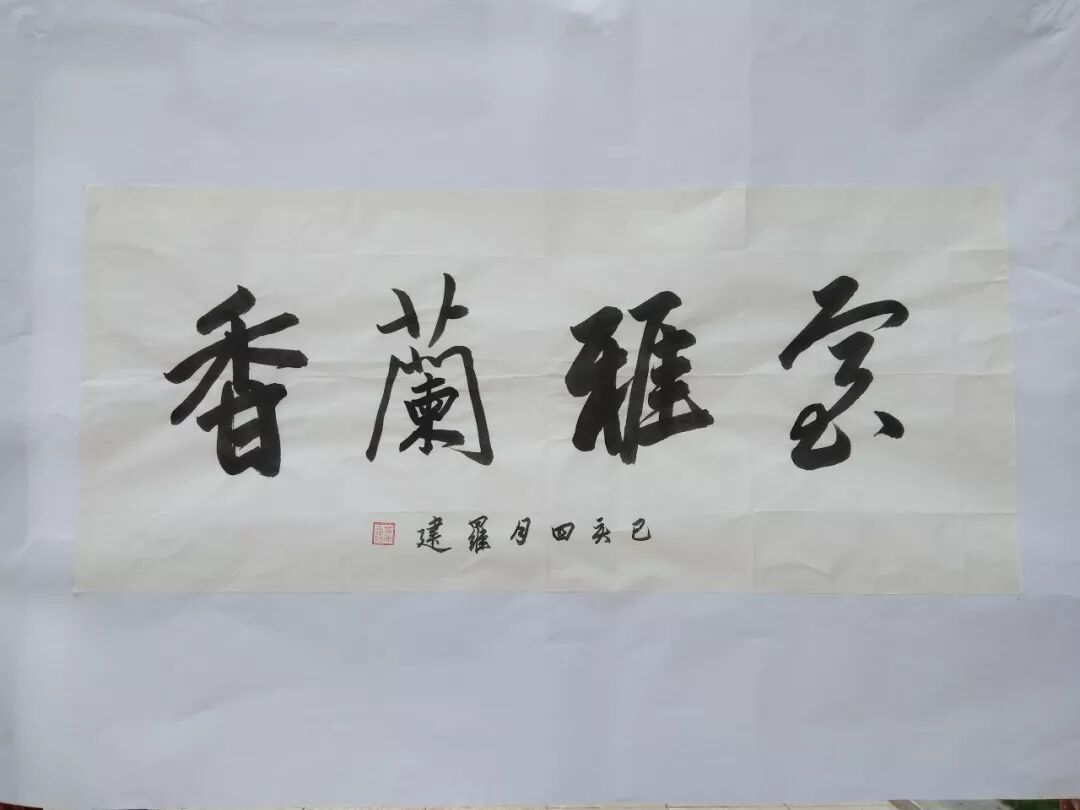 室雅蘭香
己亥四月羅建